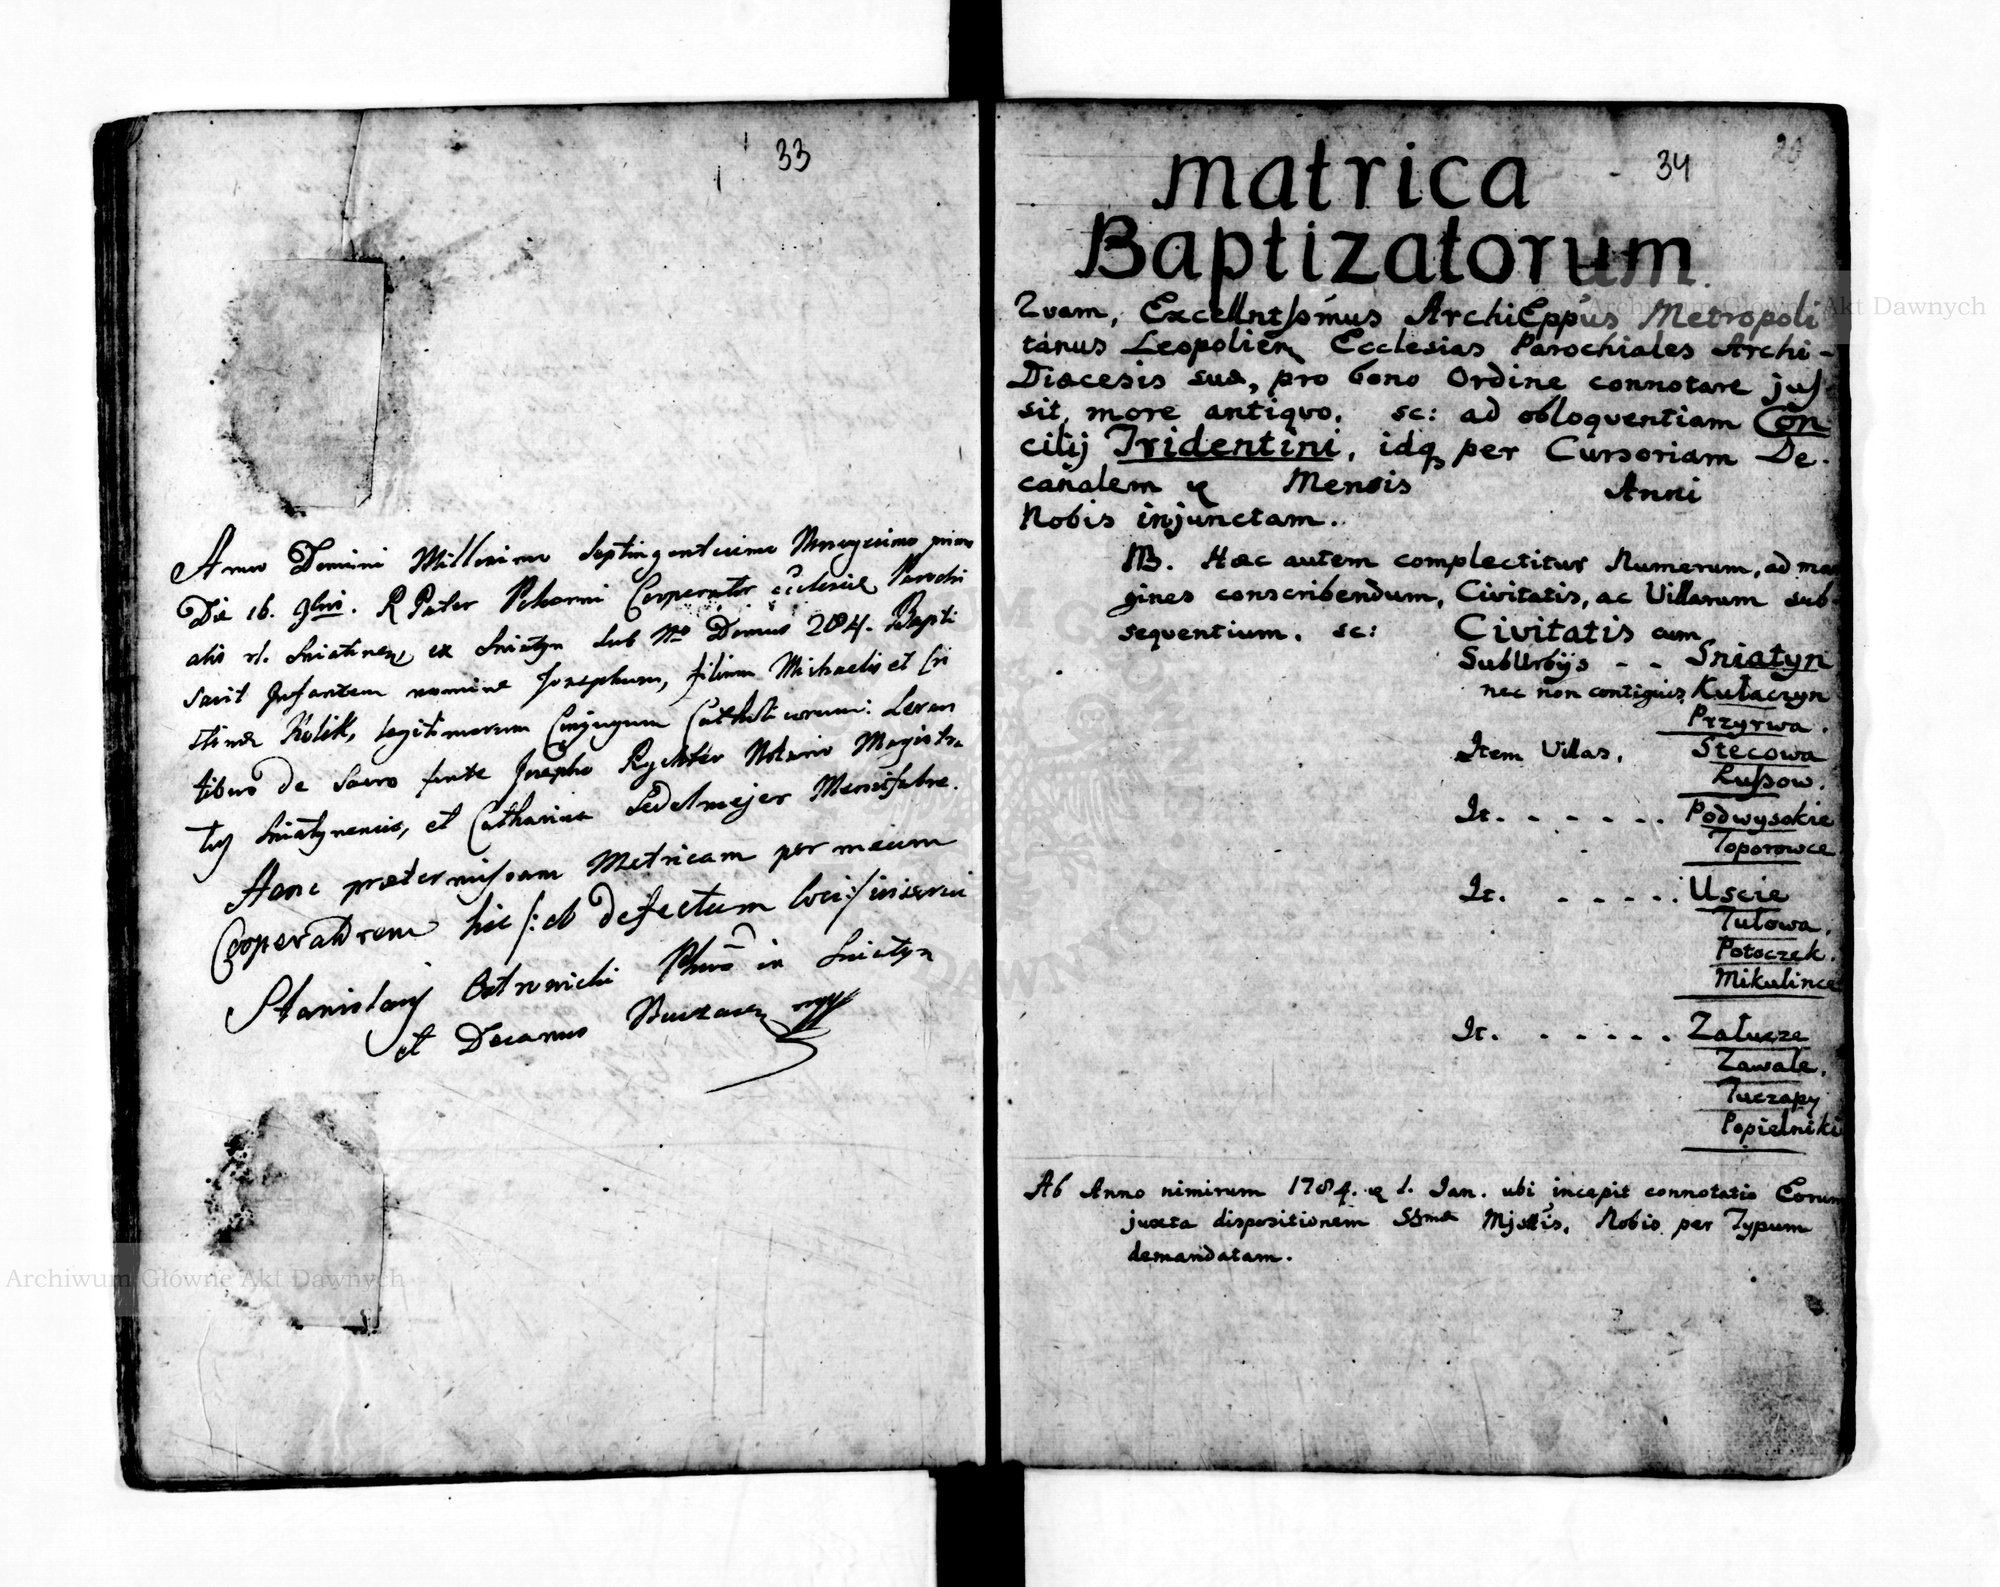 33
Anno Domini Millesimo Septingentesimo Nonagesimo primo
Die 16. 9bris. R Pater Cooperator Ecclesiæ Parochi
alis rl. Sniatinen ex Sniatyn sub Nro Domus 204. Bapti
savit Infantem nomine Josephum, filium Michaelis et Cri
stinæ Kolik, legitimorum Conjugum Catholicorum: Levan
tibus de Sacro fonte Josepho Rychter Notario Magistra
tus Sniatynensis, et Catharina Sedelmejer
Hanc prætermissam Metricam per meum
Cooperatorem hic /: ob defectum loci :/ inserui
Stanislaus Ostrowicki in Sniatyn
et Decanus
34
matrica
Baptizatorum.
Quam, Excellntssimus ArchiEppus Metropoli
tanus Leopolien Ecclesias Parochiales Archi-
Diæcesis suæ, pro bono Ordine connotare jus
sit, more antiquo, sc: ad obloquentiam Con
cilij Tridentini, idq per Cursoriam De-
canalem Mensis Anni
Nobis injunctam.
NB. Hæc autem complectitur Numerum, ad mar
gines conscribendum, Civitatis, ac Villarum sub-
sequentium. sc: Civitatis cum
SubUrbijs - - Sniatyn
nec non contiguis, Kułaczyn
Przyrwa.
Item Villas, Stecowa
Russow.
It. - - - - - - Podwysokie
Toporowce
It. - - - - - Uscie
Tułowa,
Potoczek.
Mikulince
It. - - - - - Załucze
Zawale,
Tuczapy
Popielniki
Ab Anno nimirum 1784. 1. Jan. ubi incepit connotatio Eorum
juxta dispositionem SSmæ Mjttis, Nobis per Typum
demandatam.
Archiwum Główne Akt Dawnych
Archiwum Główne Akt Dawnych